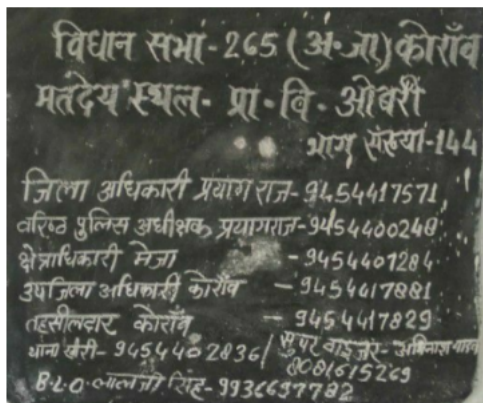 विधान सभा-265 (अ.जा) कोराँव
मतदेय स्थल- प्रा-वि-ओबरी
भाग संख्या-144
जिला अधिकारी प्रयागराज-9454417571
वरिष्ठ पुलिस अधीक्षक प्रयागराज-9454400248
क्षेत्राधिकारी मेजा -9454401284
उपजिला अधिकारी कोराँव -9454417881
तहसीलदार कोराँव -9454417829
थाना खीरी-9454402836/ सुपर वाइजर- अविनाश यादव
8081615269
B.L.O-लालजी सिंह-9936697782